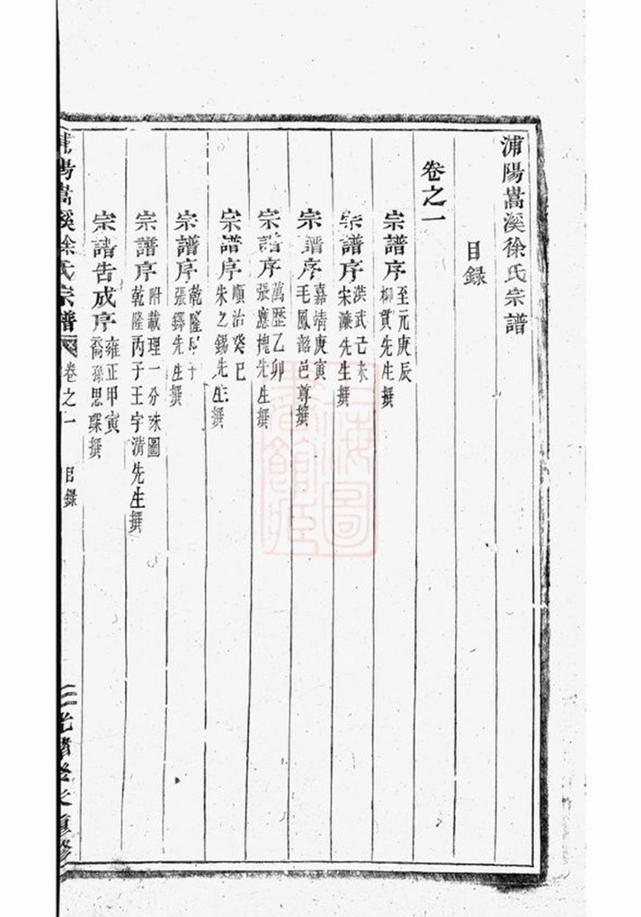 浦陽嵩溪徐氏宗譜
目錄
卷之一
宗譜序 至元庚辰 柳貫先生撰
宗譜序 洪武己未 宋濂先生撰
宗譜序 嘉靖庚寅 毛鳳韶邑尊撰
宗譜序 萬歷乙卯 張應槐先生撰
宗譜序 順治癸巳 朱之錫先生撰
宗譜序 乾隆 子 張鐸先生撰
宗譜序 附載理一分殊圖 乾隆丙子王字清先生撰
宗譜告成序 雍正甲寅 裔孫思 撰
浦陽嵩溪徐氏宗譜 卷之一 目錄 二 光緒 重修
上海圖書館藏